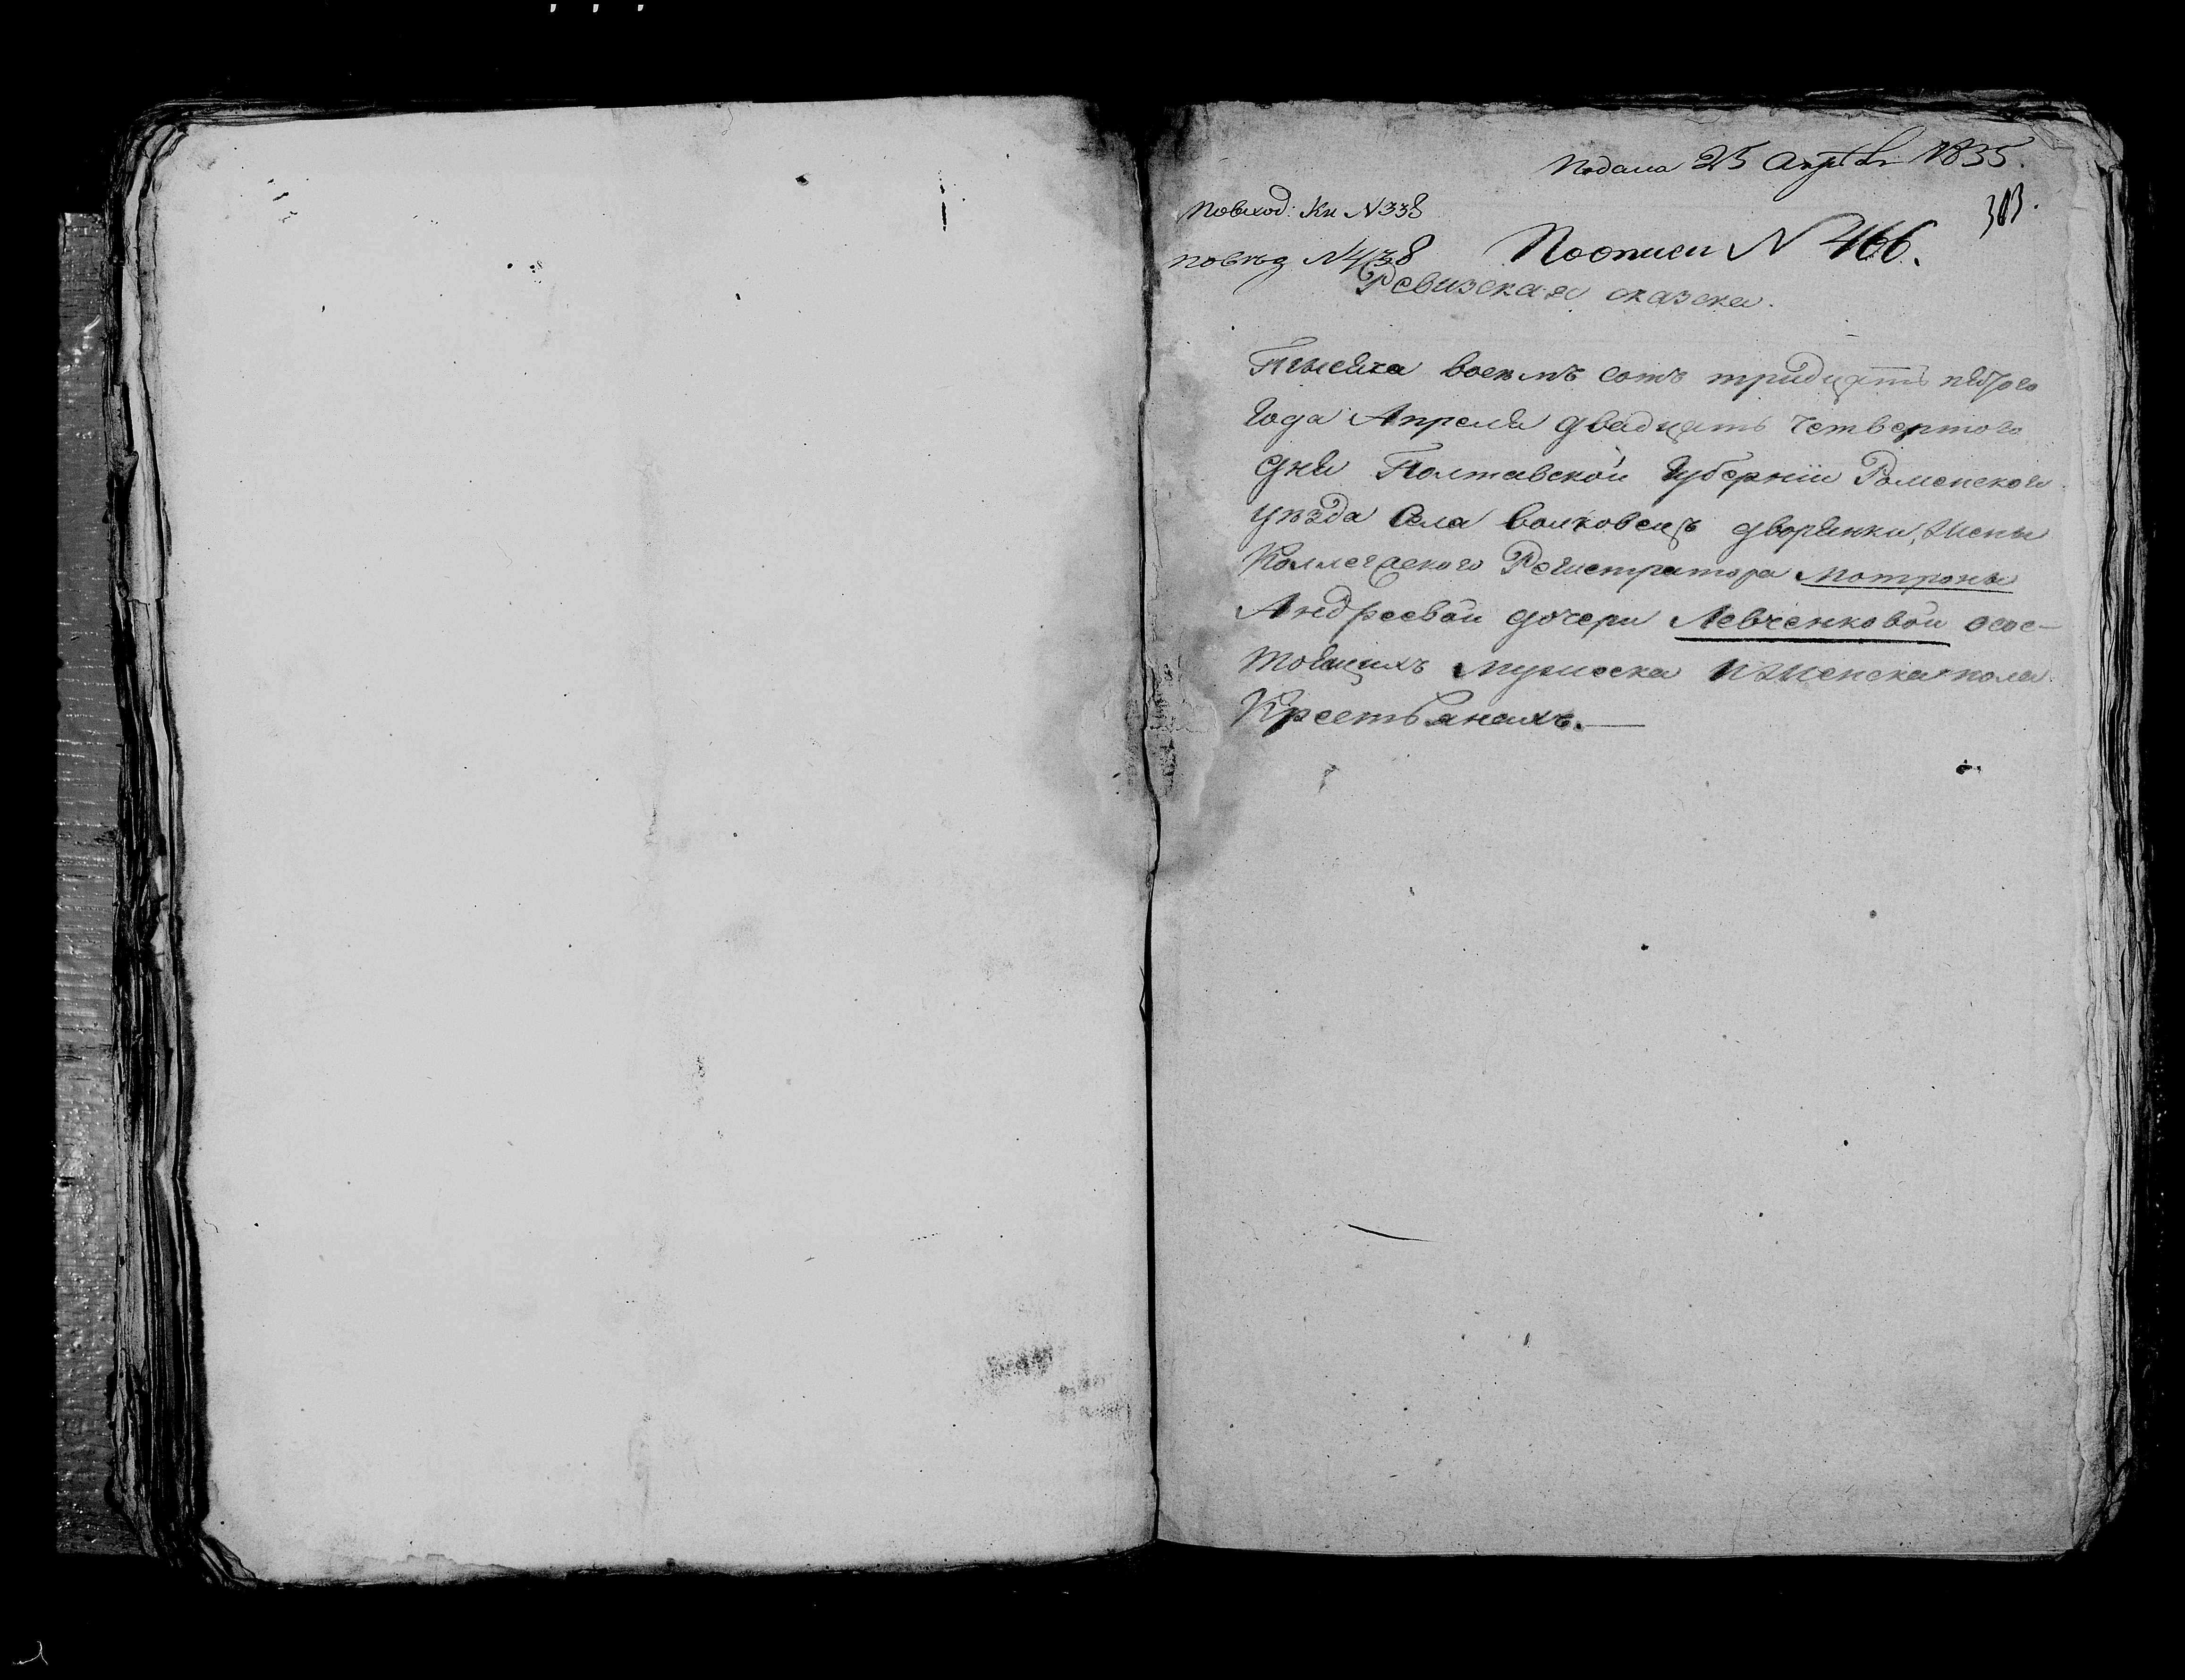 Подана 25 апреля 1835.
303.
По вход: Кн N 338
По вѣд N 438
По описи N 466.
Ревизская сказка.
Тисяча восемъ сотъ тридцять пятого
Года Апреля двадцять четвертого
дня Полтавской Губерніи Роменского
уезда Села Волковецъ дворянки, жены
Коллегского Регистратора Мотроны
Андреевой дочери Левченковой осос-
тоящихъ мужеска и женска пола
Крестьянахъ.—